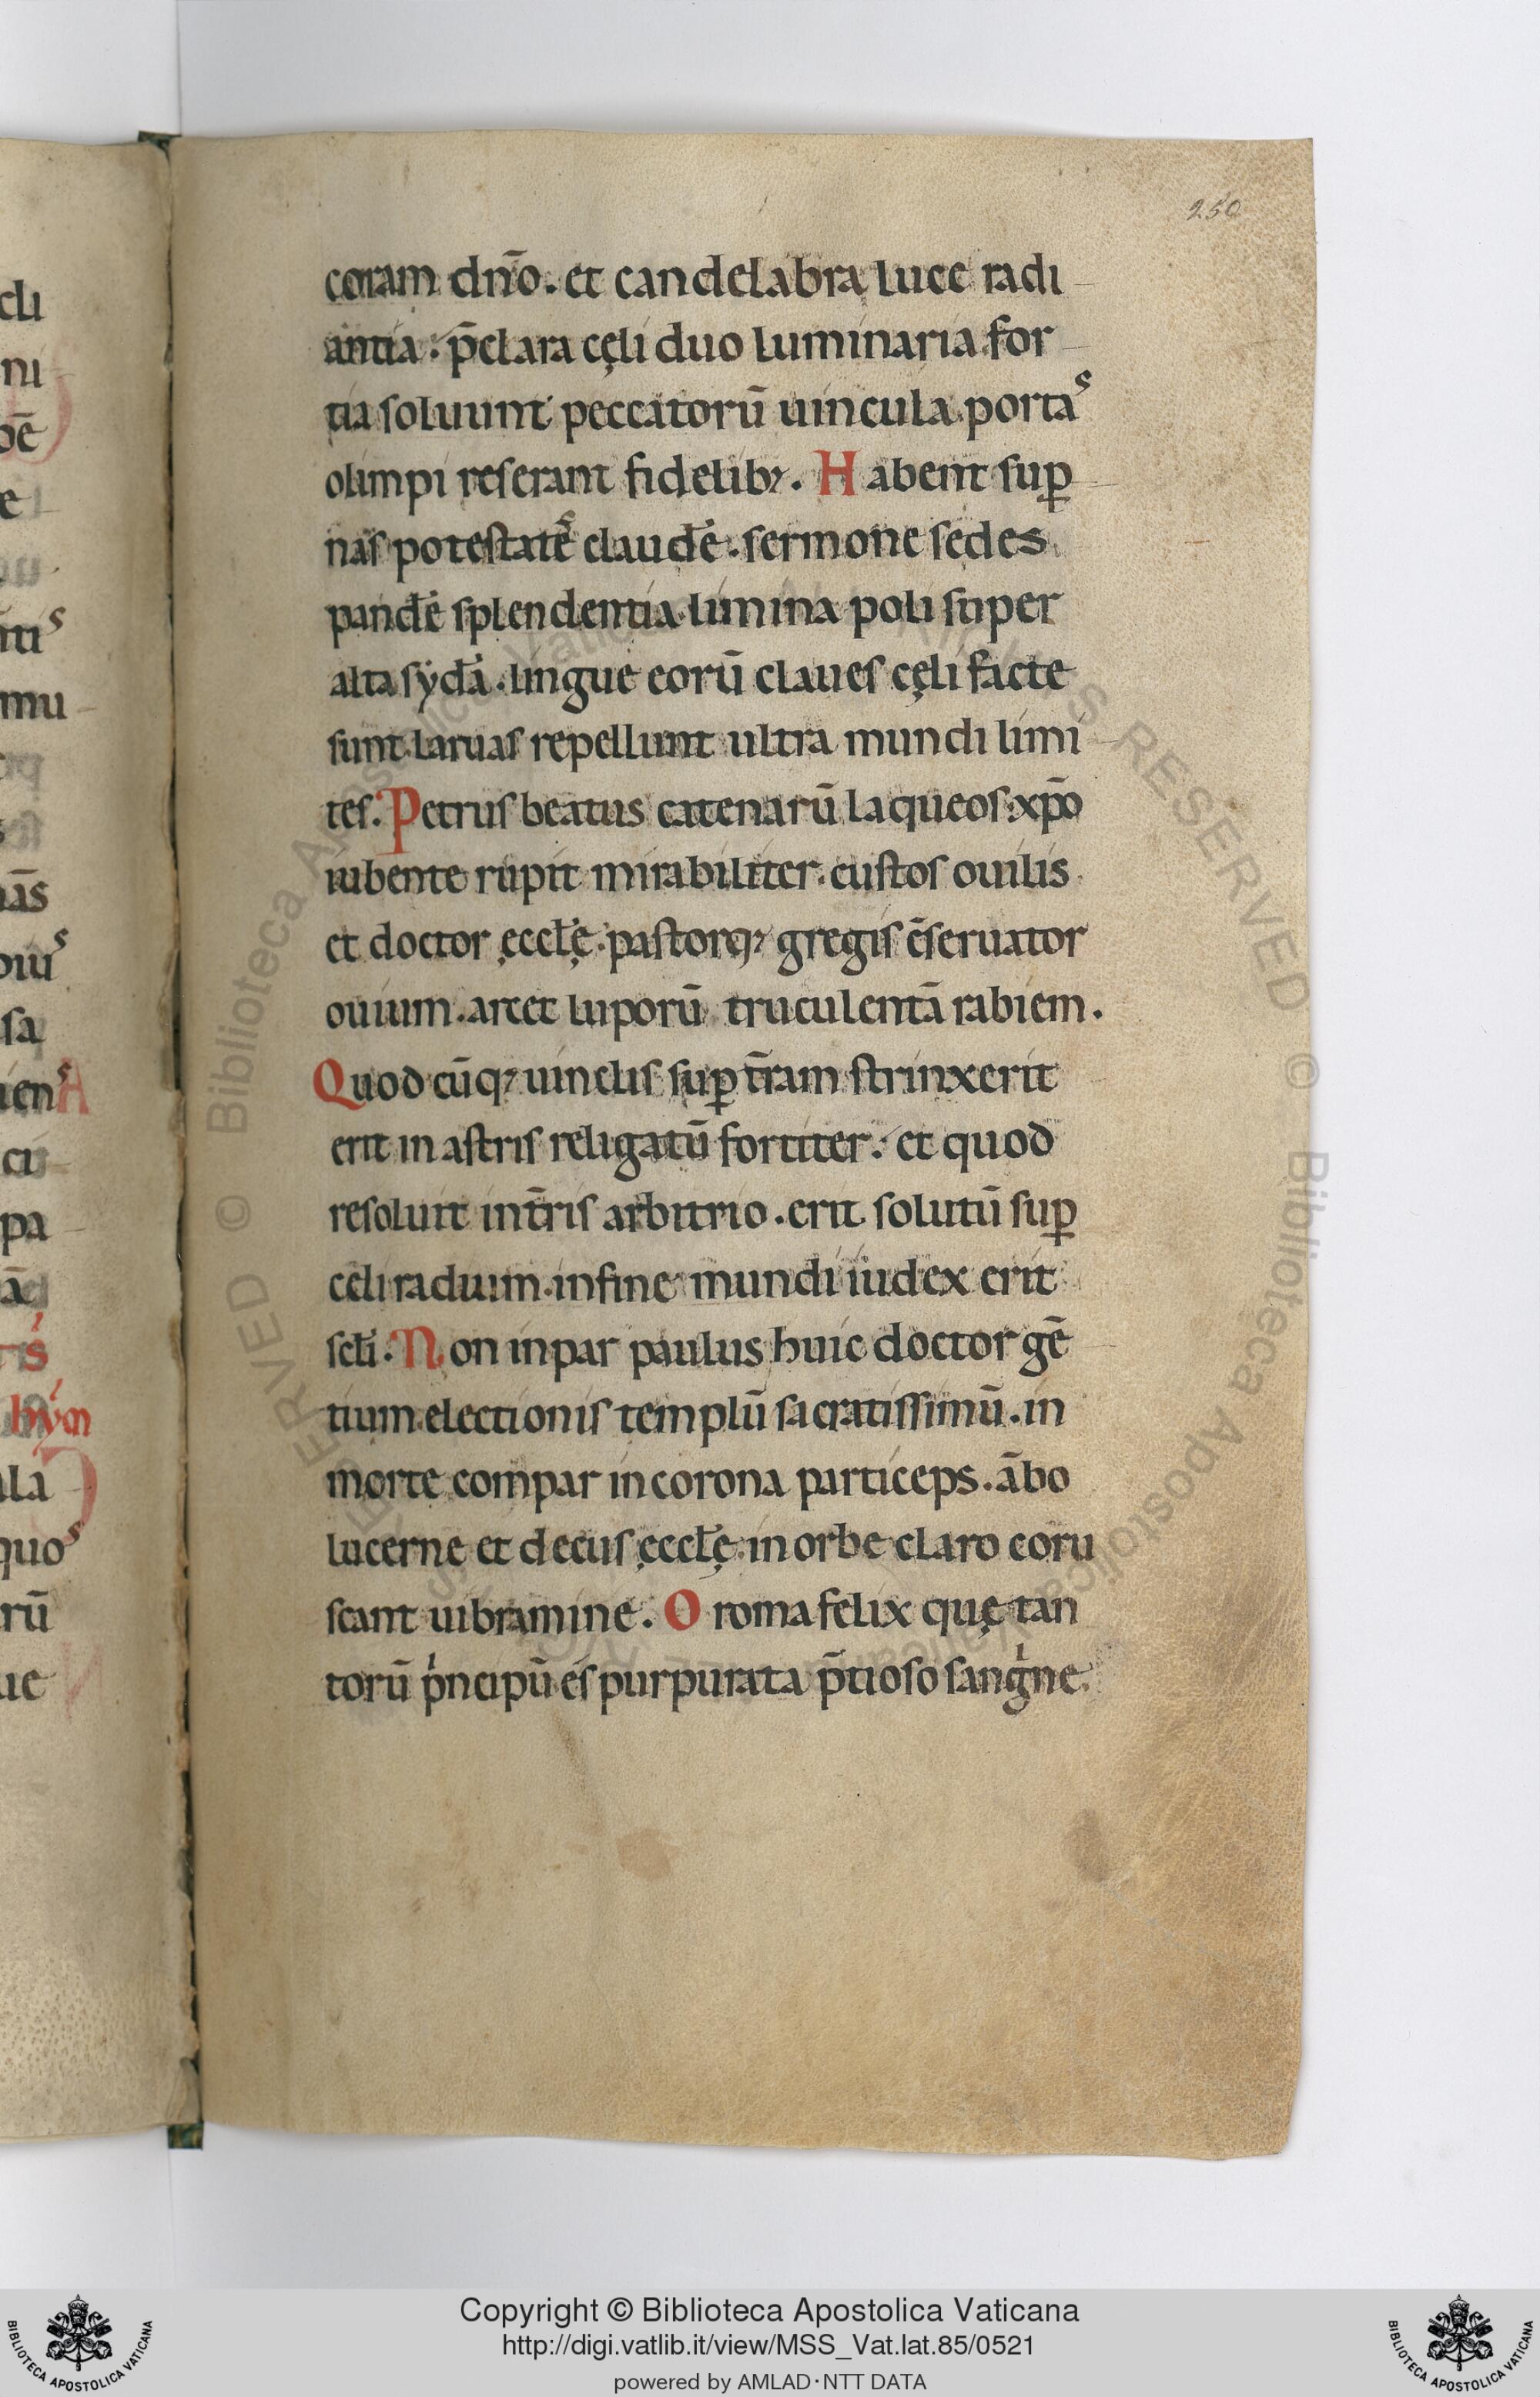 250
coram dn̄o. et candelabra luce radi
antia. p̄clara cęli duo luminaria for
tia soluunt peccatorū uincula portas
olimpi reserant fidelibꝫ. Habent suꝑ
nas potestatē claudē. sermone sedes
pandē splendentia limina poli super
alta syda. lingue eorū claues cęli facte
sunt laruas repellunt ultra mundi limi
tes. Petrus beatus catenarū laqueos. xp̄o
iubente rupit mirabiliter. custos ouilis
et doctor ęccłę. pastorqꝫ gregis c̄seruator
ouium. arcet luporū truculentā rabiem.
Quod cūqꝫ uinclis suꝑ t̄ram strinxerit
erit in astris religatū fortiter. et quod
resoluit in t̄ris arbitrio. erit solutū suꝑ
celi radium. in fine mundi iudex erit
scłi. Non inpar paulus huic doctor gē
tium electionis templū sacratissimū. in
morte compar in corona particeps. ābo
lucerne et decus ęccłę. in orbe claro coru
scant uibramine. O roma felix quę tan
torū pͥncipū es purpurata p̄tioso sangͥne.
Copyright © Biblioteca Apostolica Vaticana
http://digi.vatlib.it/view/MSS_Vat.lat.85/0521
powered by AMLAD·NTT DATA
BIBLIOTECA APOSTOLICA VATICANA
BIBLIOTECA APOSTOLICA VATICANA